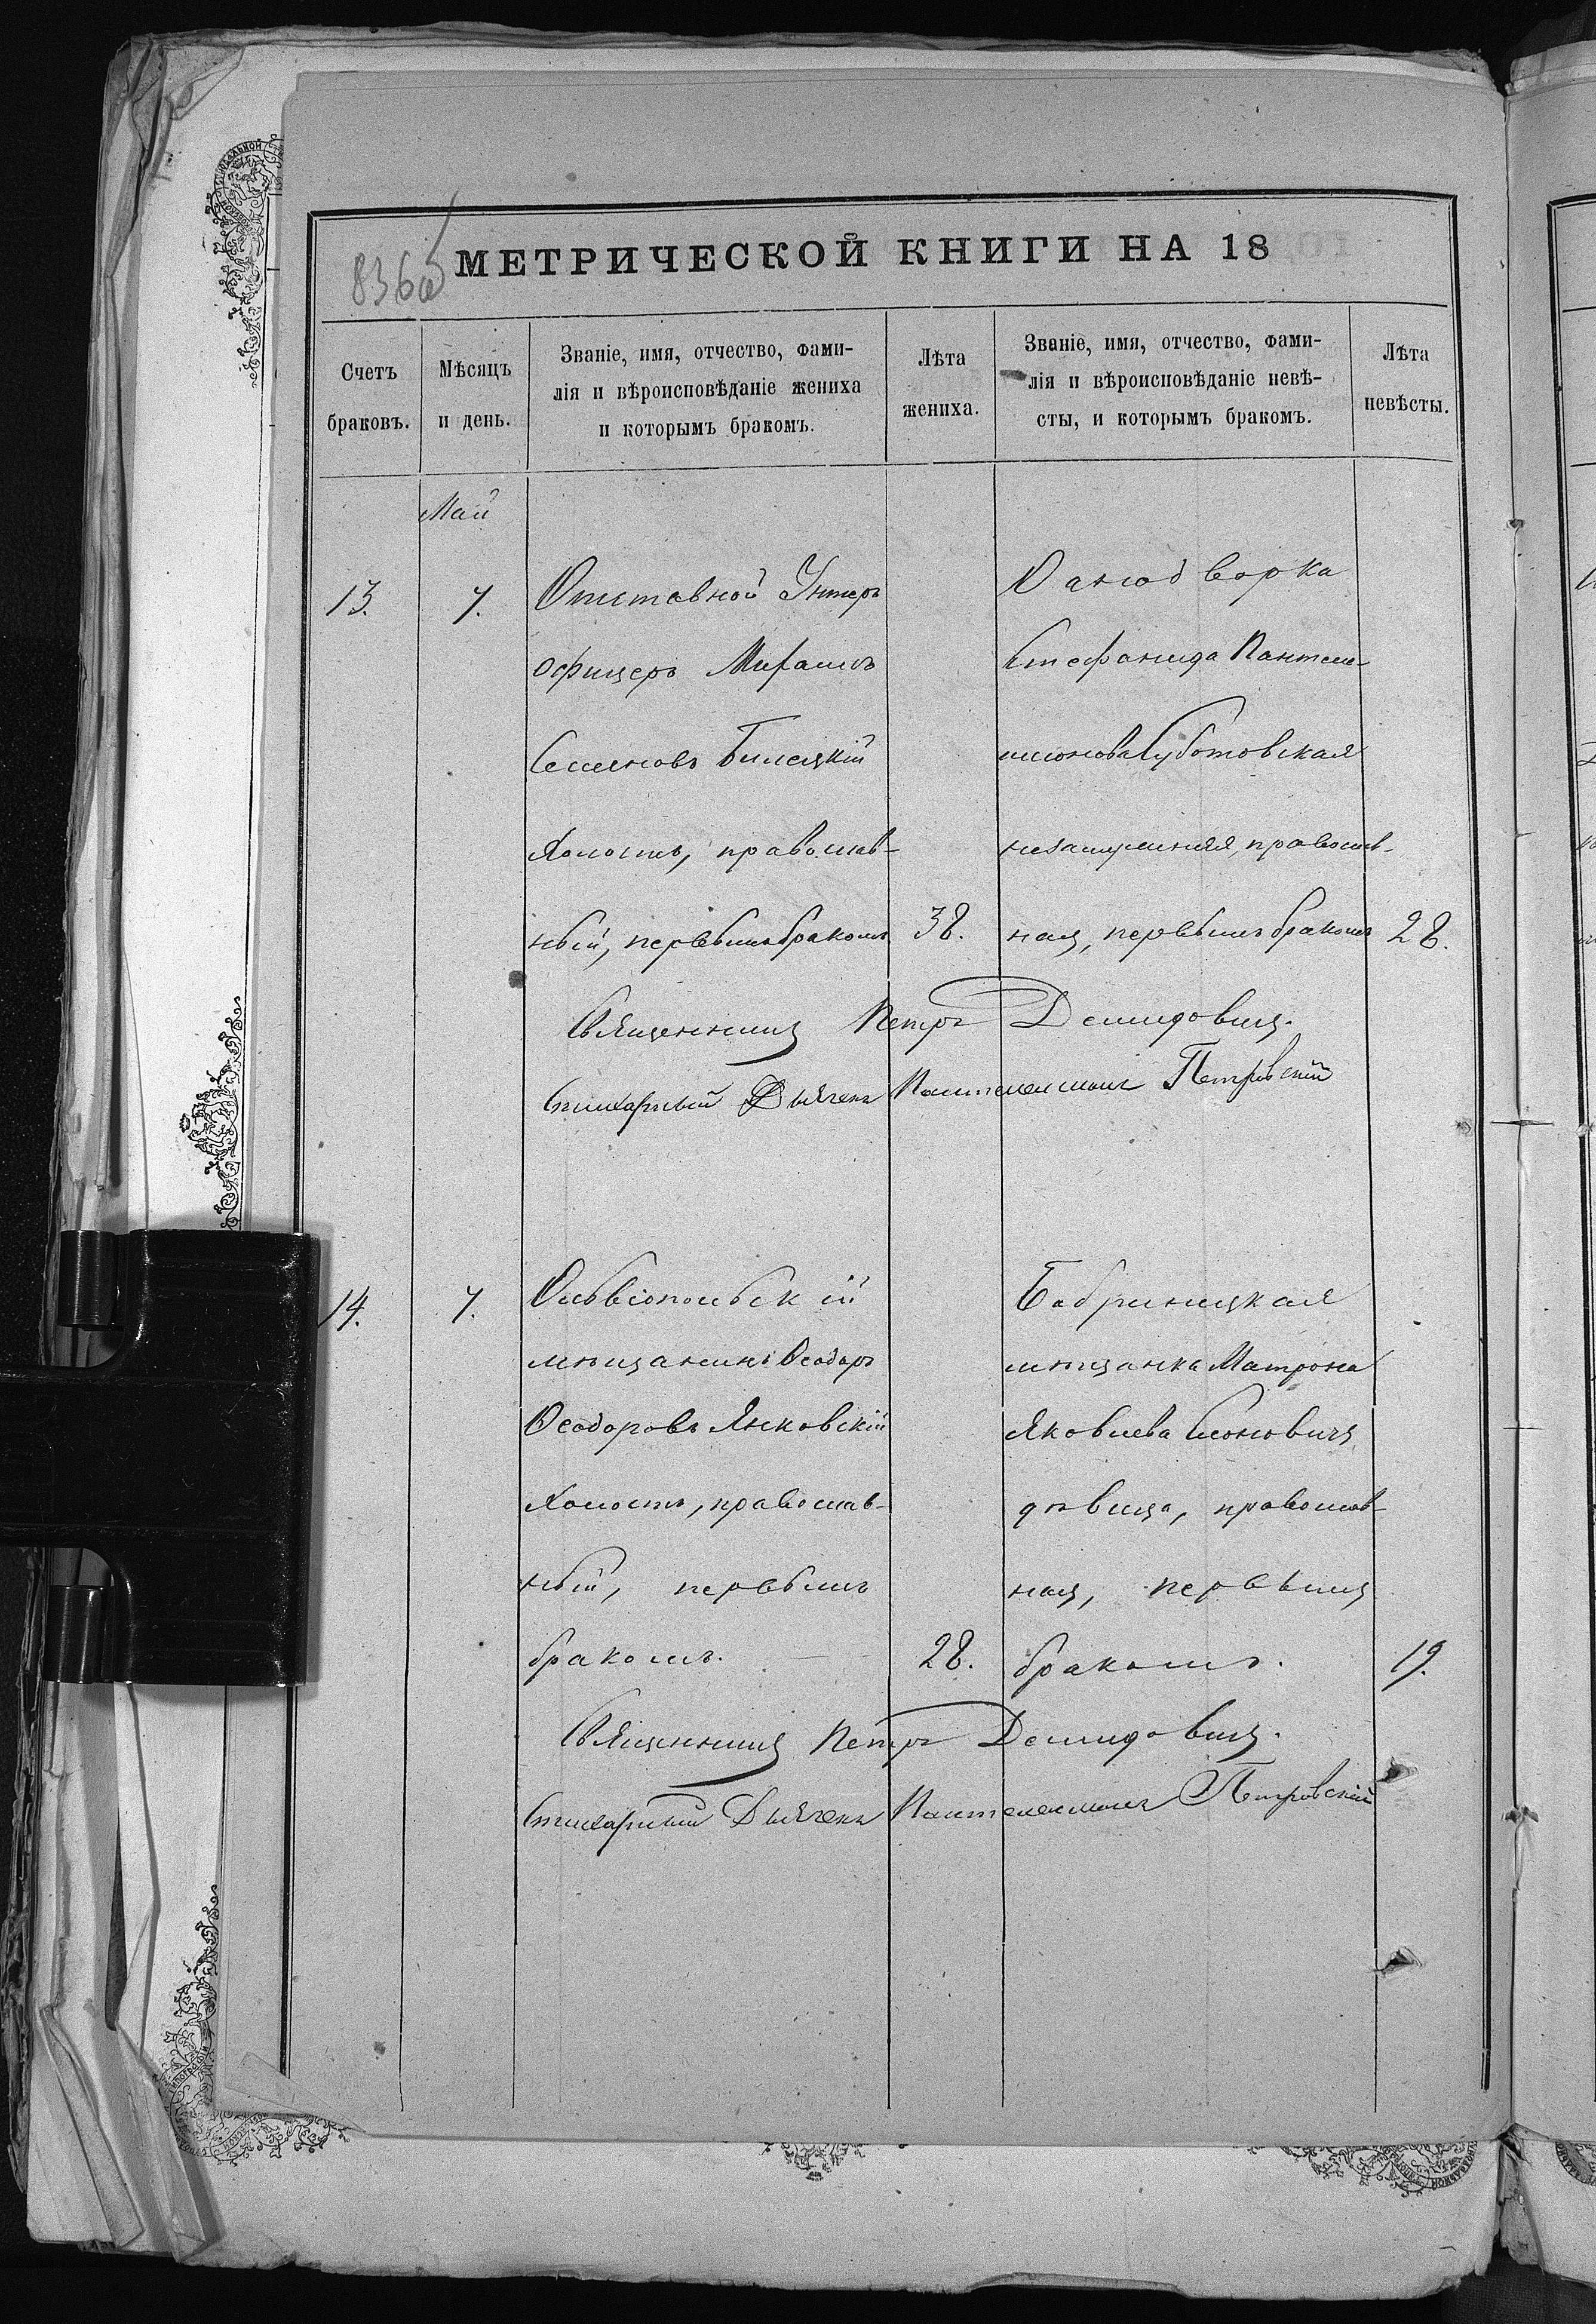 836об
МЕТРИЧЕСКОЙ КНИГИ НА 18
Счетъ
браковъ.
Мѣсяцъ
и день.
Званіе, имя, отчество, фами-
лія и вѣроисповѣданіе жениха
и которымъ бракомъ.
Лѣта
жениха.
Званіе, имя, отчество, фами-
лія и вѣроисповѣданіе невѣ-
сты, и которымъ бракомъ.
Лѣта
невѣсты.
Май
13.
7.
Отставной Унтеръ
офицеръ Михаилъ
Семеновъ Билецкій
холостъ, православ-
ный, первымъ бракомъ
38.
Однодворка
Стефанида Пантеле-
имонова Суботовская
незамужняя, православ-
ная, первымъ бракомъ
28.
Священникъ Петръ Демидовичъ.
Стихарный Дьячекъ Пантелеимонъ Петровскій
14.
7.
Ольвіопольскій
мѣщанинъ Ѳеодоръ
Ѳеодоровъ Янковскій
холостъ, православ-
ный, первымъ
бракомъ.
28.
Бобринецкая
мѣщанка Матрона
Яковлева
дѣвица, православ-
ная, первымъ
бракомъ.
19.
Священникъ Петръ Демидовичъ.
Стихарный Дьячекъ Пантелеимонъ Петровскій